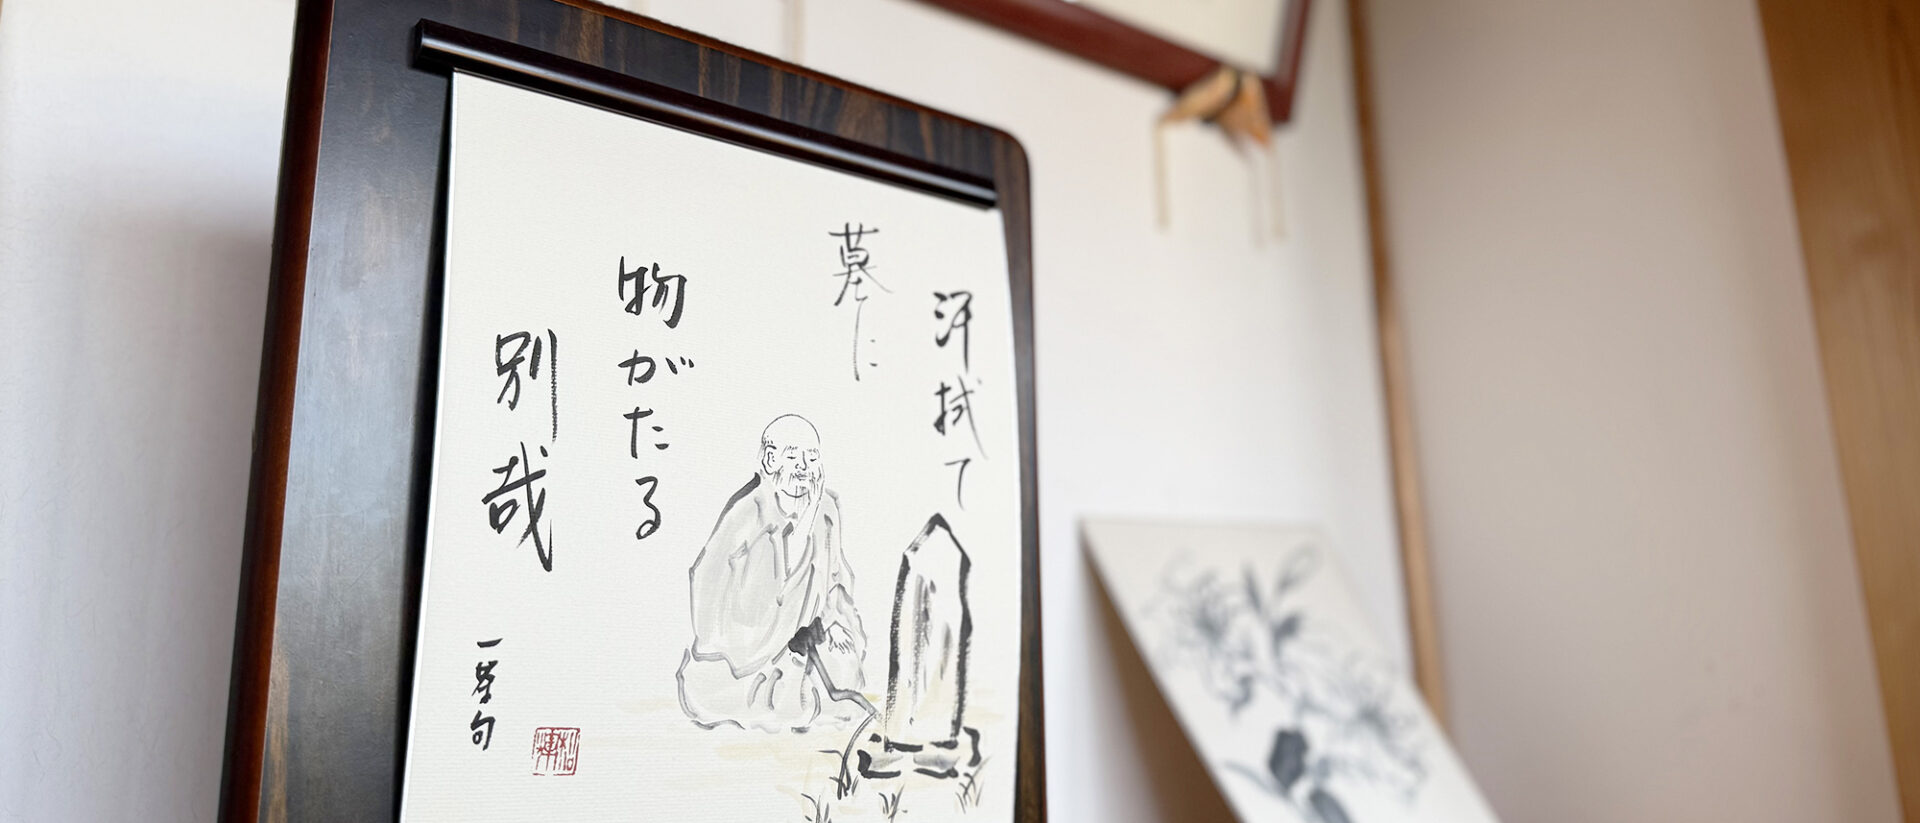 汗拭て
墓に
物がたる
別哉
一茶句